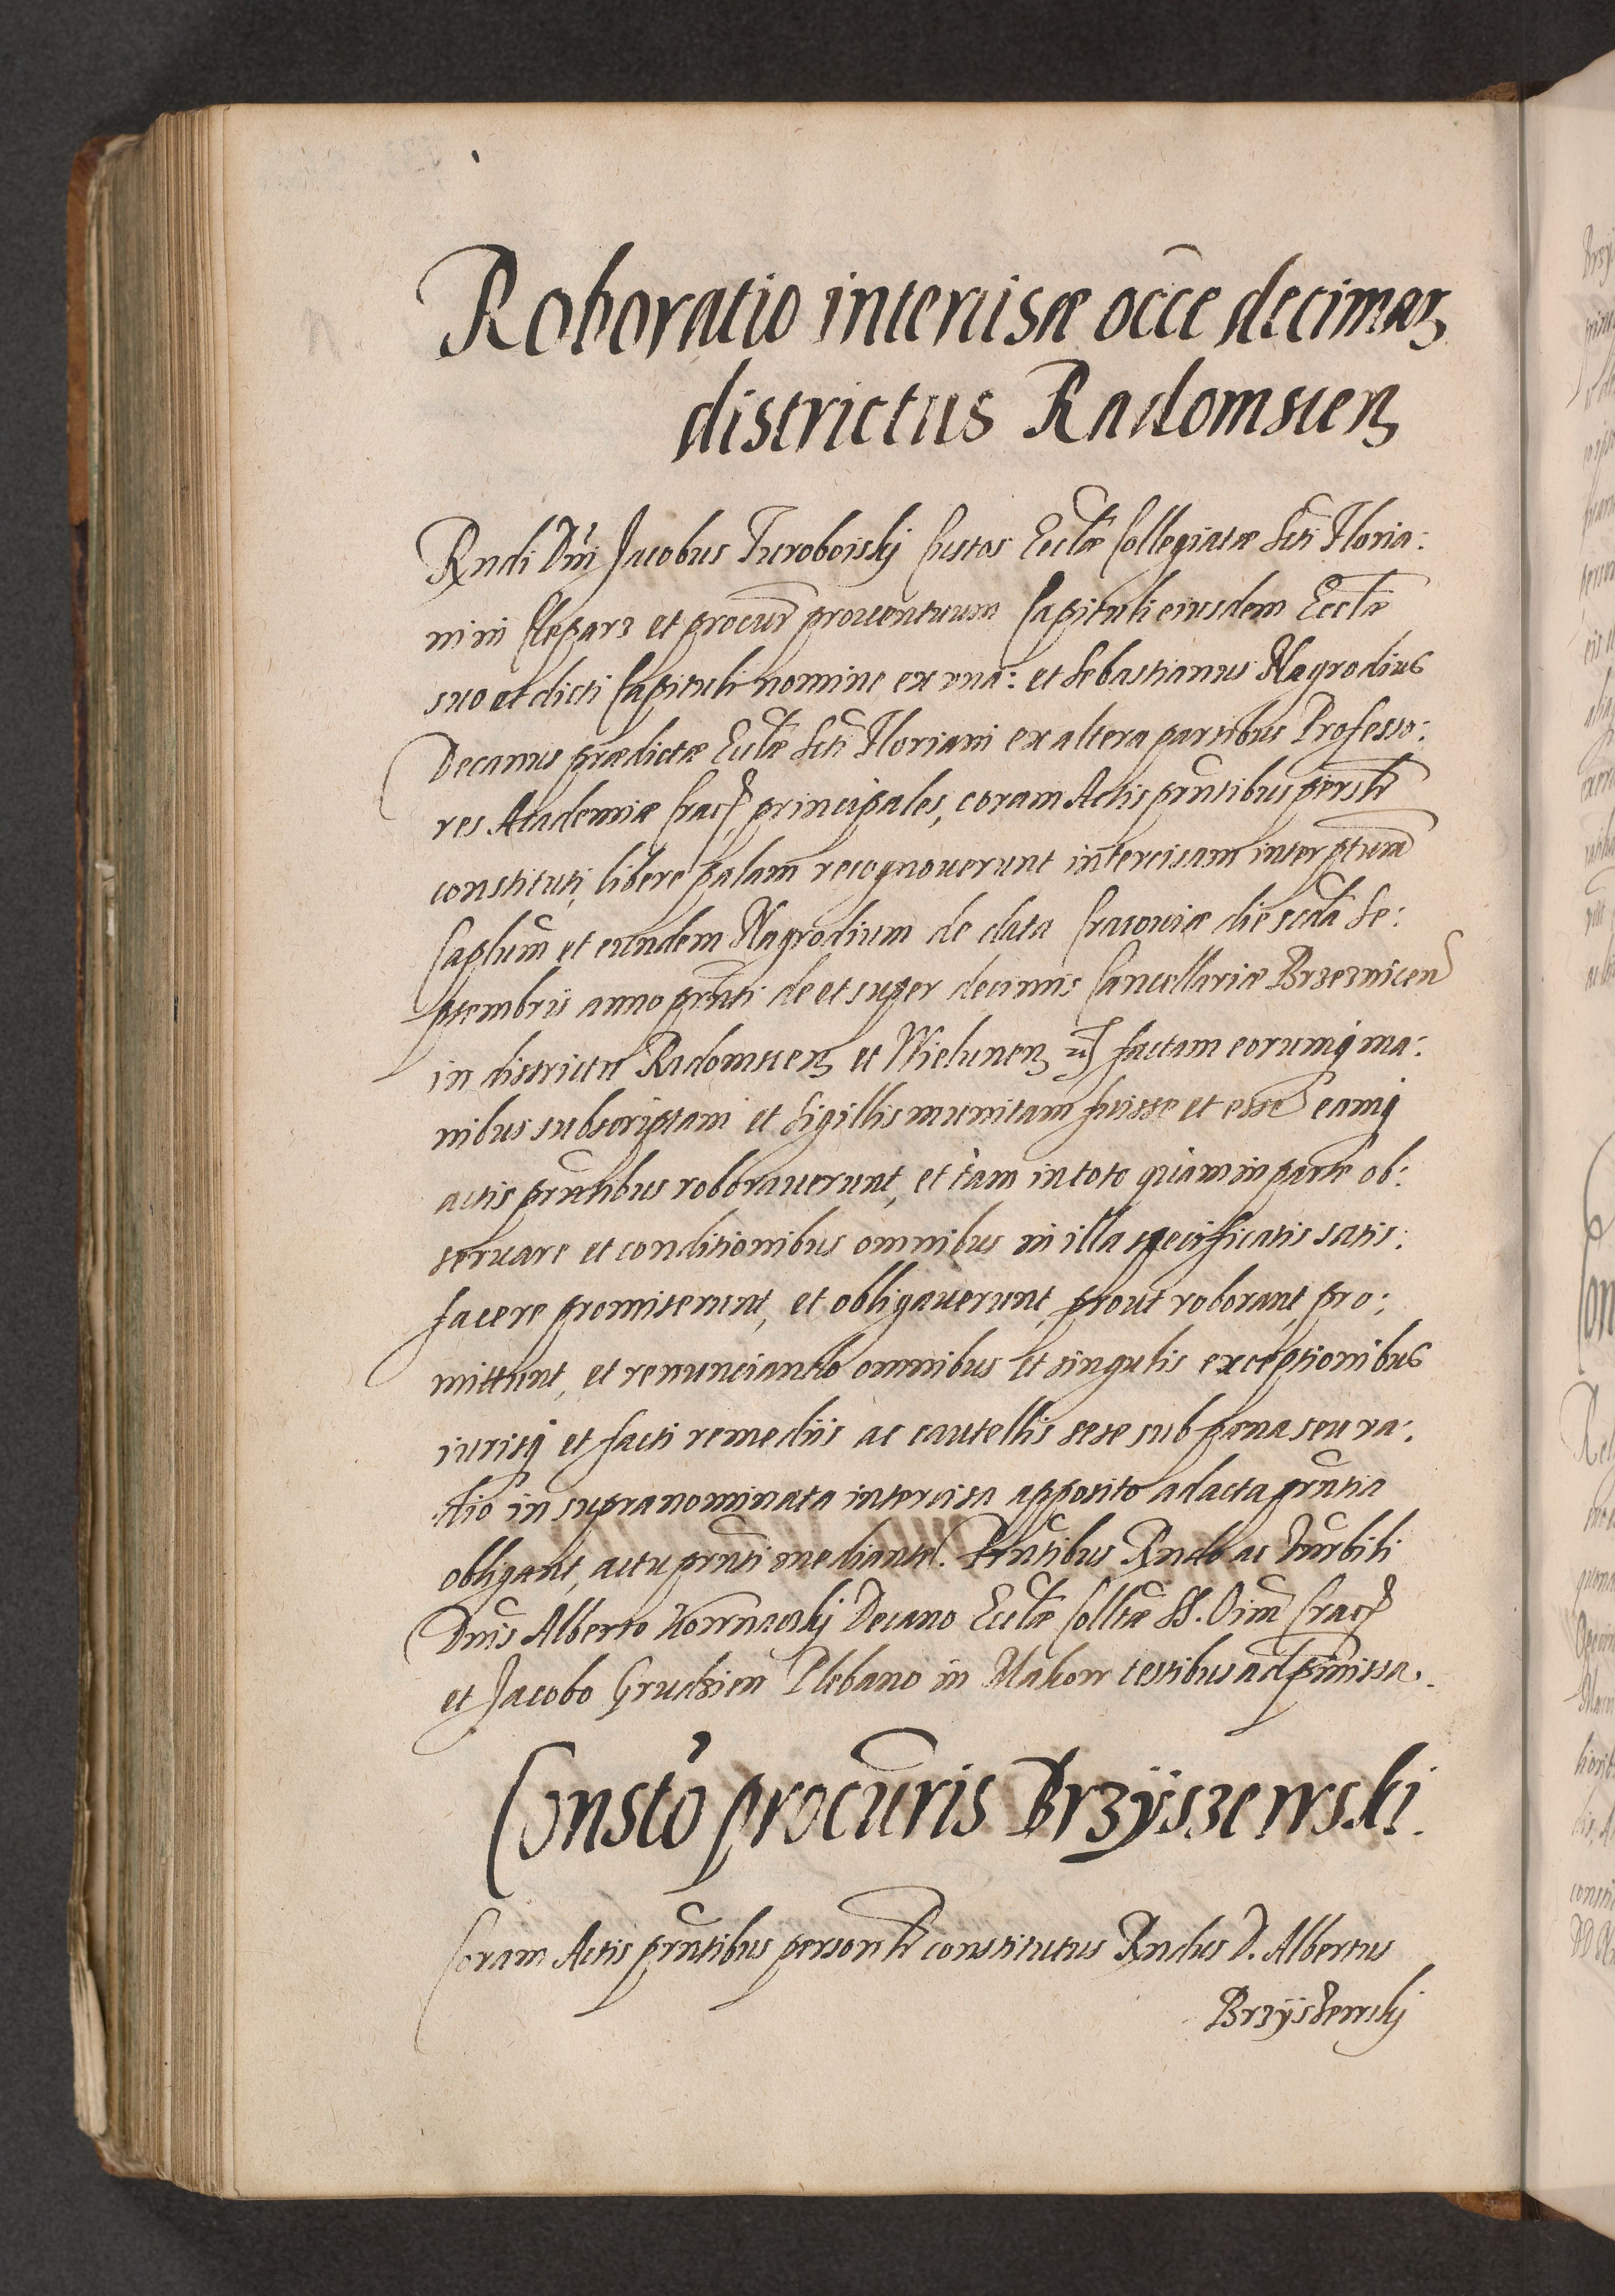 Roboratio intercisæ occe decimaꝝ
districtus Radomsien
Rndi Dni Jacobus Turoboiskij Custos Ecclæ Collegiatæ Scti Floria:
ni in Clepars et procur prouentuum Capituli eiusdem Ecclæ
suo et dicti Capituli nomine ex vna: et Sebastianus Nagrodius
Decanus prædictæ Ecclæ Scti Floriani ex altera partibus Professo:
res Academiæ Crac, principales, coram Actis pntibus personlr
constituti, libere palam recognouerunt intercisam inter ptum
Caplum et eundem Nagrodium de data Cracouiæ die scda Se:
ptembris anno pnti de et super decimis Cancellariæ Brzeznicen
in districtu Radomsien et Wielunen factam eorumq ma:
nibus subscriptam et Sigillis munitam fuisse et esse eamq
actis pntibus roborauerunt, et tam in toto quam in parte ob:
seruare et conditionibus omnibus in illa specificatis satis:
facere promiserunt, et obligauerunt, prout roborant, pro:
mittunt, et renunciando omnibus et singulis exceptionibus
iurisq et facti remediis ac cautellis sese sub pæna seu va:
dio in supranominata intercisa apposito ad acta pntia
obligant, actu pnti mediante. Pntibus Rndo ac Vnrbili
Dnis Alberto Decano Ecclæ Colltæ SS. Oim Crac
et Jacobo Grudzien Plebano in Makow testibus ad pmissa.
Consto procuris Brzÿszewski.
Coram Actis pntibus personlr constitutus Rndus D. Albertus
Brzÿszewskij